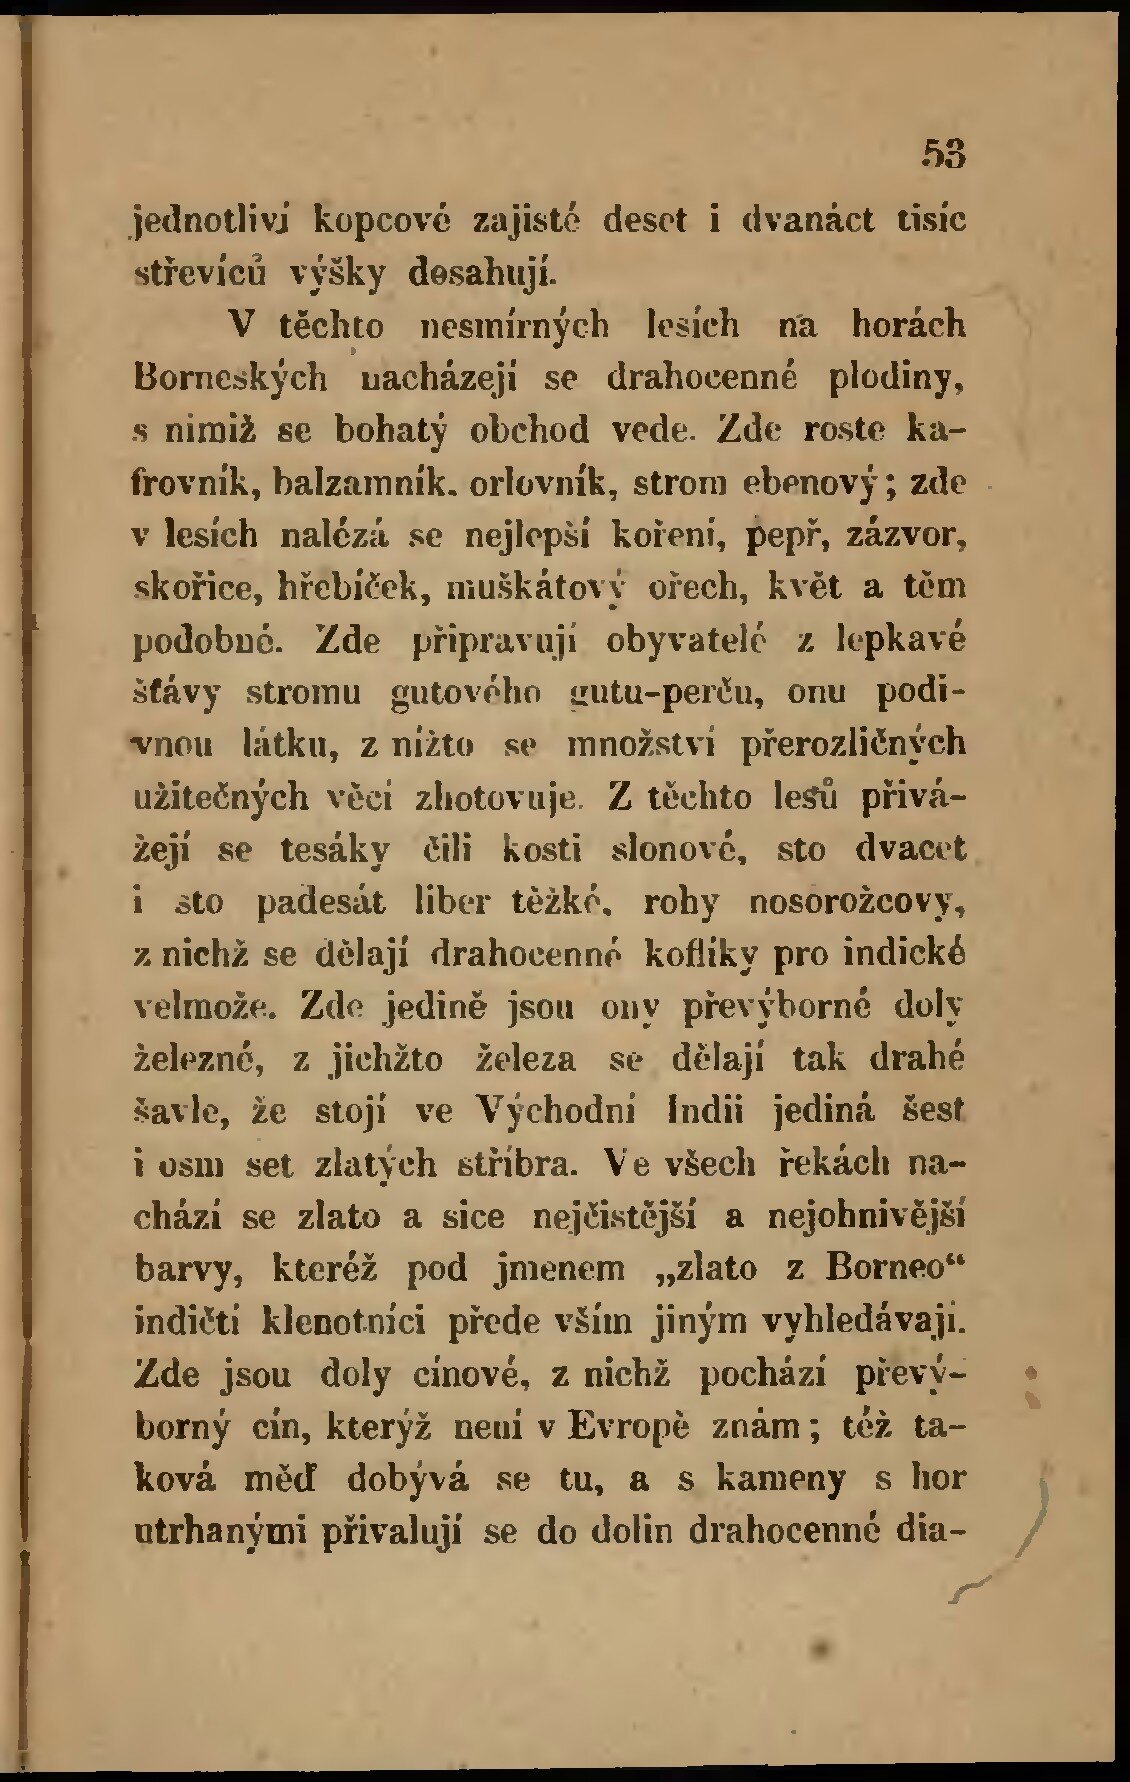 53
jednotliví kopcové zajisté deset i dvanáct tisíc
střevíců výšky dosahují.
V těchto nesmírných lesích na horách
Borneských nacházejí se drahocenné plodiny,
s nimiž se bohatý obchod vede. Zde roste ka-
frovník, balzamník, orlovník, strom ebenový; zde
v lesích nalézá se nejlepší koření, pepř, zázvor,
skořice, hřebíček, muškátový ořech, květ a těm
podobné. Zde připravují obyvatelé z lepkavé
šťávy stromu gutového gutu-perču, onu podi-
vnou látku, z nížto se množství přerozličných
užitečných věcí zhotovuje. Z těchto lesů přivá-
žejí se tesáky čili kosti slonové, sto dvacet
i sto padesát liber těžké, rohy nosorožcovy,
z nichž se dělají drahocenné koflíky pro indické
velmože. Zde jedině jsou ony převýborné doly
železné, z jichžto železa se dělají tak drahé
šavle, že stojí ve Východní Indii jediná šest
i osm set zlatých stříbra. Ve všech řekách na-
chází se zlato a sice nejčistější a nejohnivější
barvy, kteréž pod jmenem „zlato z Borneo“
indičtí klenotníci přede vším jiným vyhledávají.
Zde jsou doly cínové, z nichž pochází převý-
borný cín, kterýž není v Evropě znám; též ta-
ková měď dobývá se tu, a s kameny s hor
utrhanými přivalují se do dolin drahocenné dia-